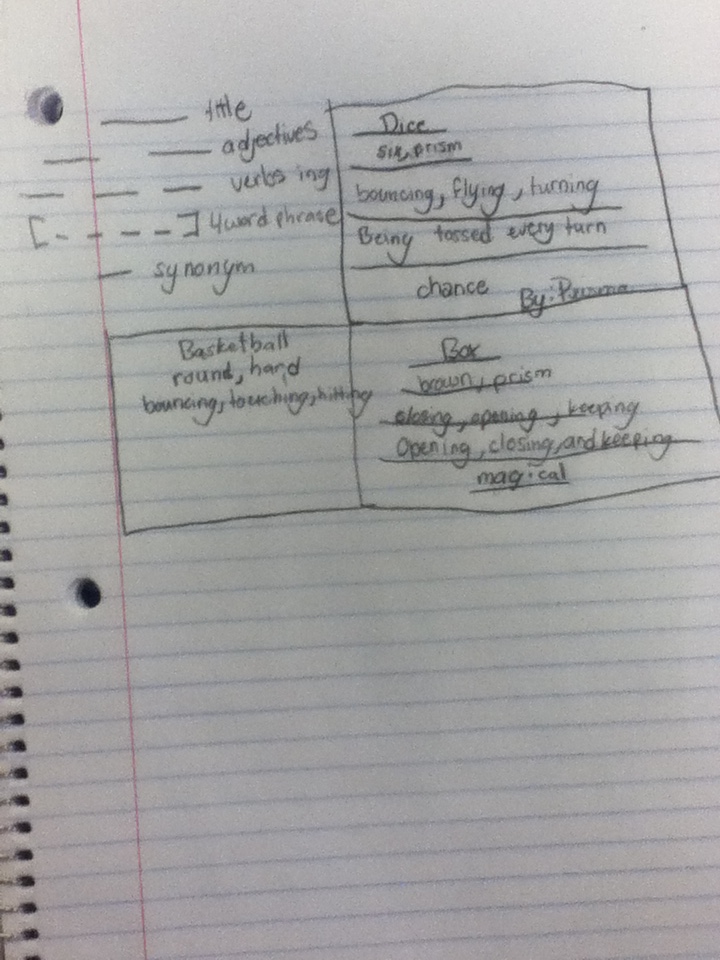 title
adjectives
verbs ing
[ ] 4 word phrase
synonym
Dice
six, prism
bouncing, flying, turning
Being tossed every turn
chance
By:
Basketball
round, hard
bouncing, touching, hitting
Box
brown, prism
closing, opening, keeping
Opening, closing, and keeping
magical